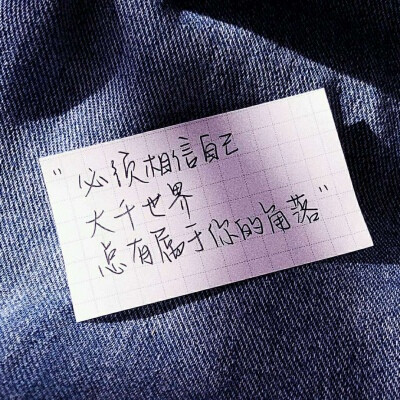 "必须相信自己
大千世界
总有属于你的角落"